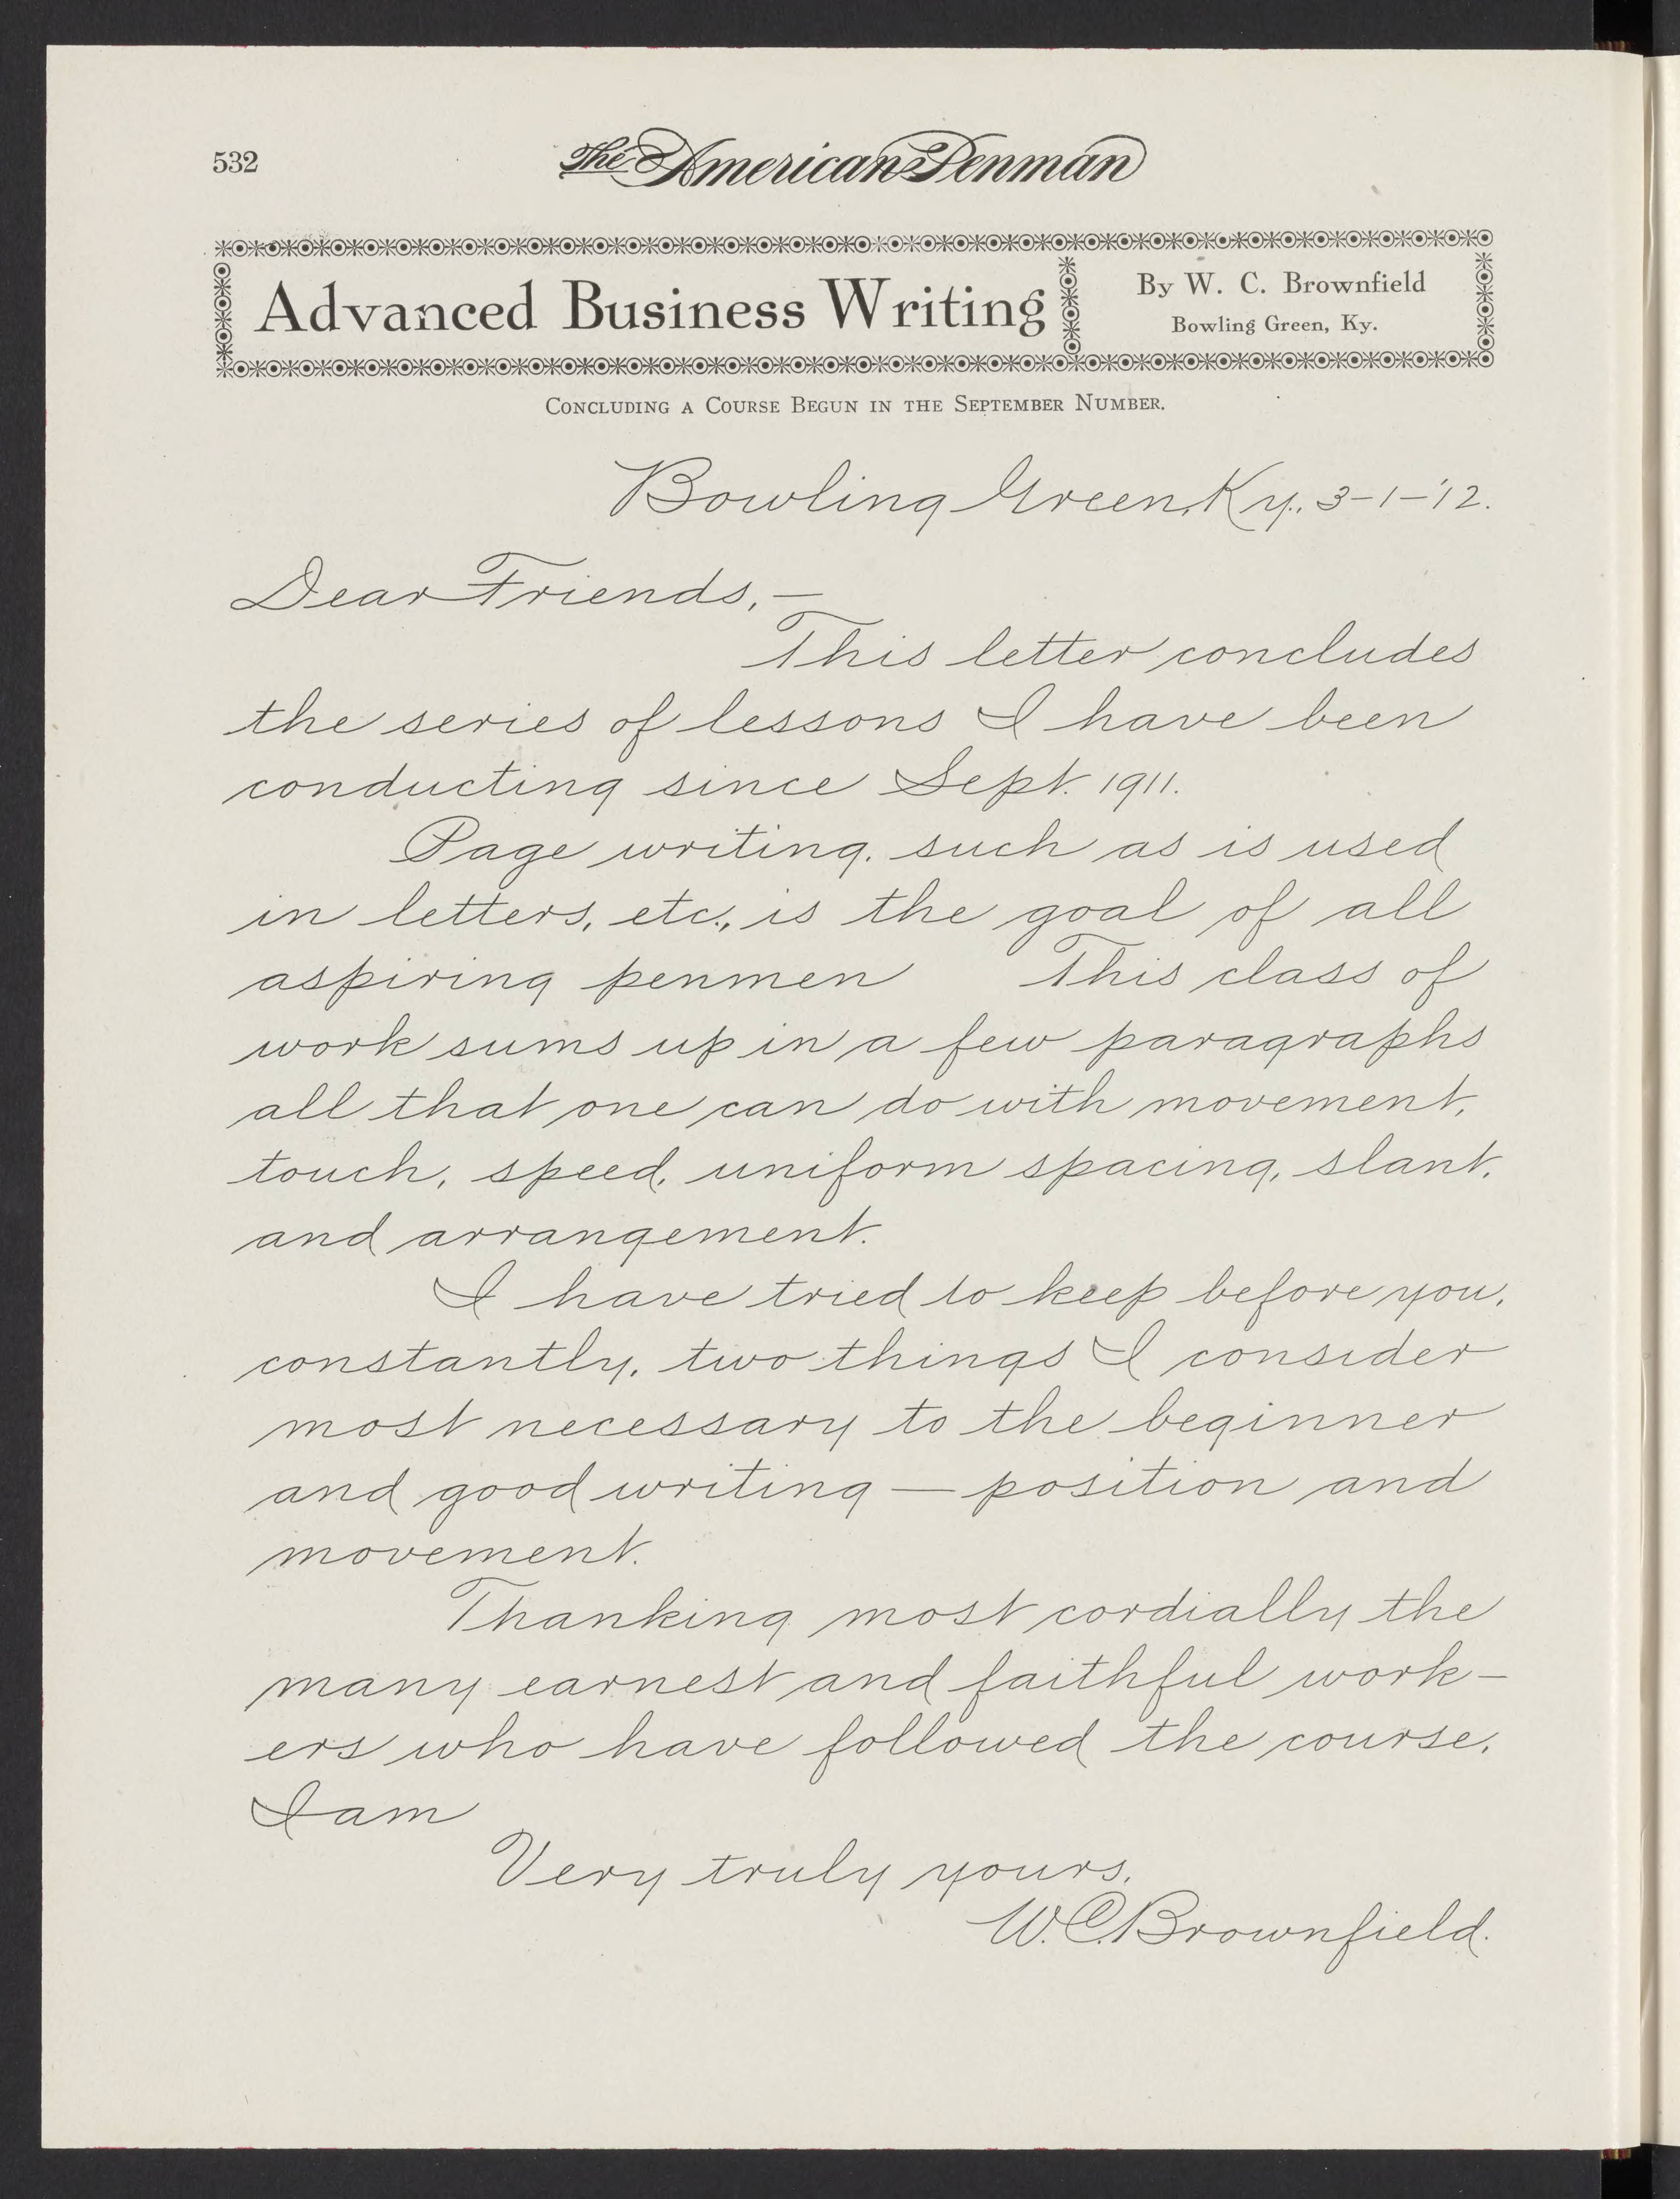 532
The American Penman
Advanced Business Writing
By W. C. Brownfield
Bowling Green, Ky.
Concluding a Course Begun in the September Number.
Bowling Green, Ky., 3-1-'12.
Dear Friends,—
This letter concludes
the series of lessons I have been
conducting since Sept. 1911.
Page writing, such as is used
in letters, etc., is the goal of all
aspiring penmen This class of
work sums up in a few paragraphs
all that one can do with movement,
touch, speed, uniform spacing, slant,
and arrangement.
I have tried to keep before you,
constantly, two things I consider
most necessary to the beginner
and good writing — position and
movement.
Thanking most cordially the
many earnest and faithful work-
ers who have followed the course,
I am
Very truly yours,
W. C. Brownfield.